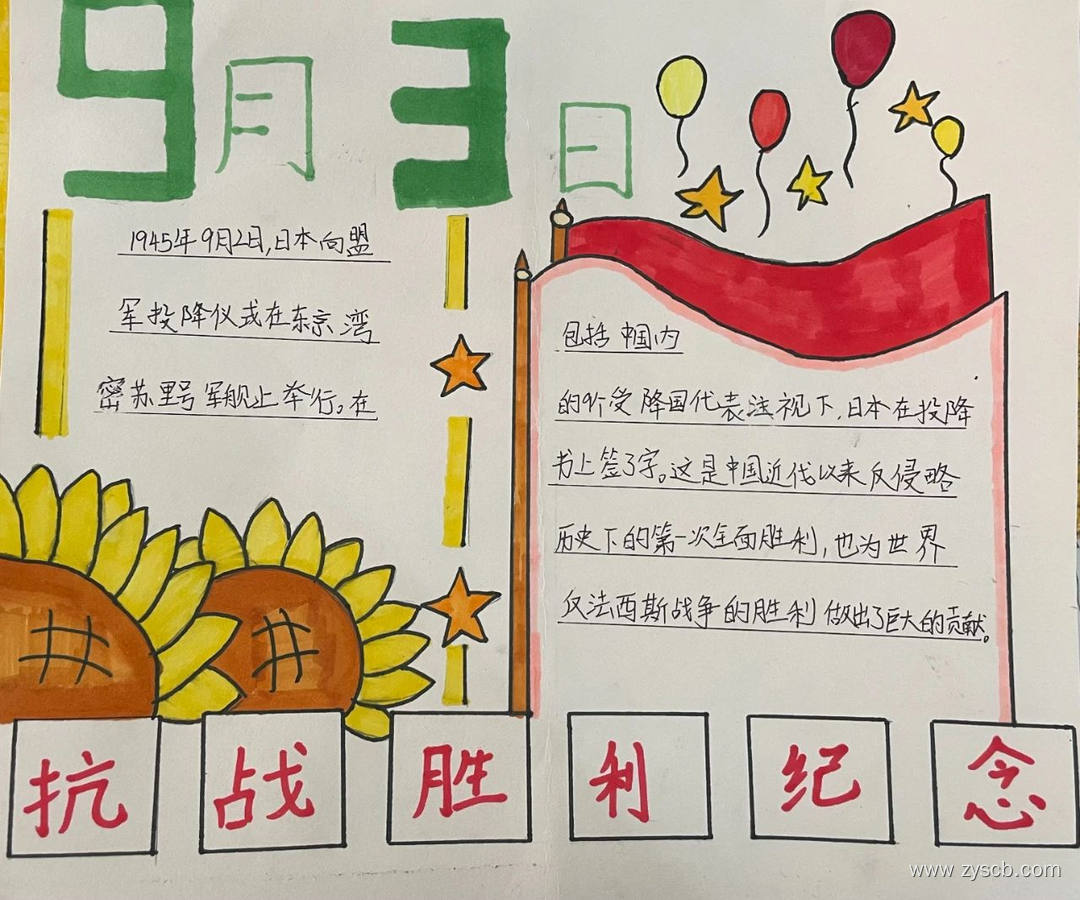 9月3日
1945年9月2日,日本向盟
军投降仪式在东京湾
密苏里号军舰上举行。在
包括中国内
的9个受降国代表注视下,日本在投降
书上签了字。这是中国近代以来反侵略
历史下的第一次全面胜利,也为世界
反法西斯战争的胜利做出了巨大的贡献。
抗战胜利纪念
www.zyscb.com